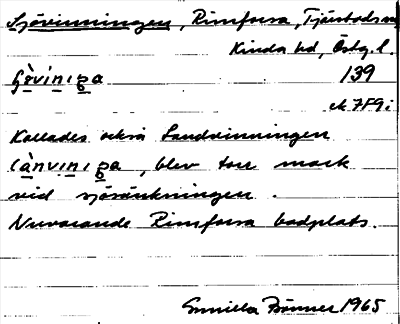 Sjövinningen, Rimforsa, Tjärstads sn
Kinda hd, Östg. l.
139
ek 7F9i
Kallades också Landvinningen
blev torr mark
vid sjösänkningen.
Nuvarande Rimforsa badplats.
Gunilla 1965